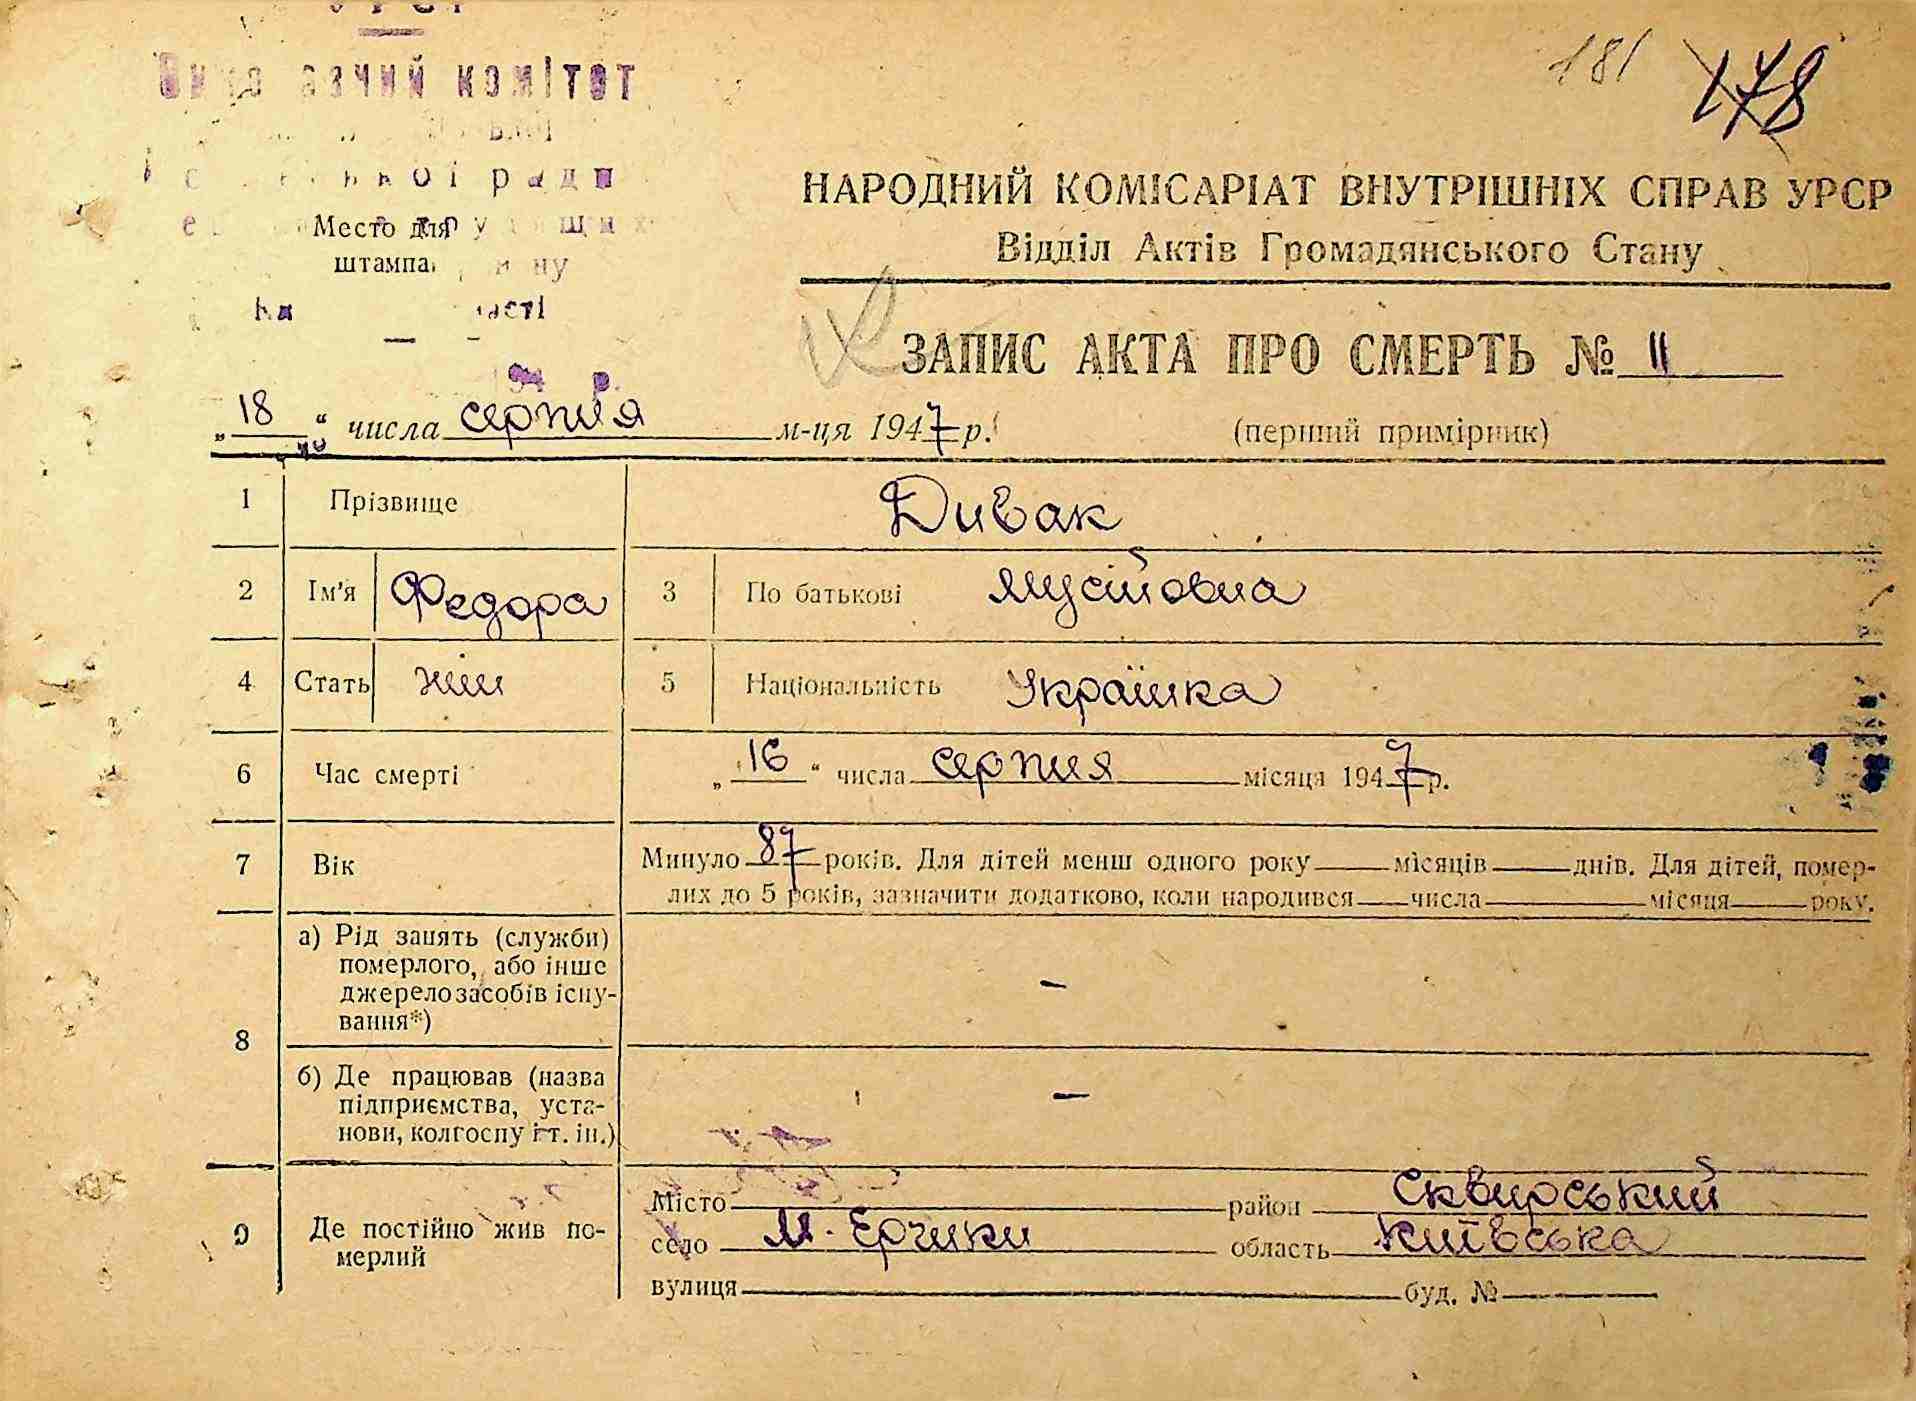 181 178
комітет
ради
Место для
штампа
НАРОДНИЙ КОМІСАРІАТ ВНУТРІШНІХ СПРАВ УРСР
Відділ Актів Громадянського Стану
ЗАПИС АКТА ПРО СМЕРТЬ № 11
„18“ числа серпня м-ця 1947 р.
(перший примірник)
1 Прізвище Дивак
2 Ім'я Федора 3 По батькові Мусійовна
4 Стать жін 5 Національність Українка
6 Час смерті „16“ числа серпня місяця 1947 р.
7 Вік Минуло 87 років. Для дітей менш одного року місяців днів. Для дітей, помер-
лих до 5 років, зазначити додатково, коли народився числа місяця року.
8 а) Рід занять (служби)
померлого, або інше
джерело засобів існу-
вання*) –
б) Де працював (назва
підприємства, уста-
нови, колгоспу і т. ін.) –
9 Де постійно жив по-
мерлий
Місто район Сквирський
село М. Єрчики область Київська
вулиця буд. №